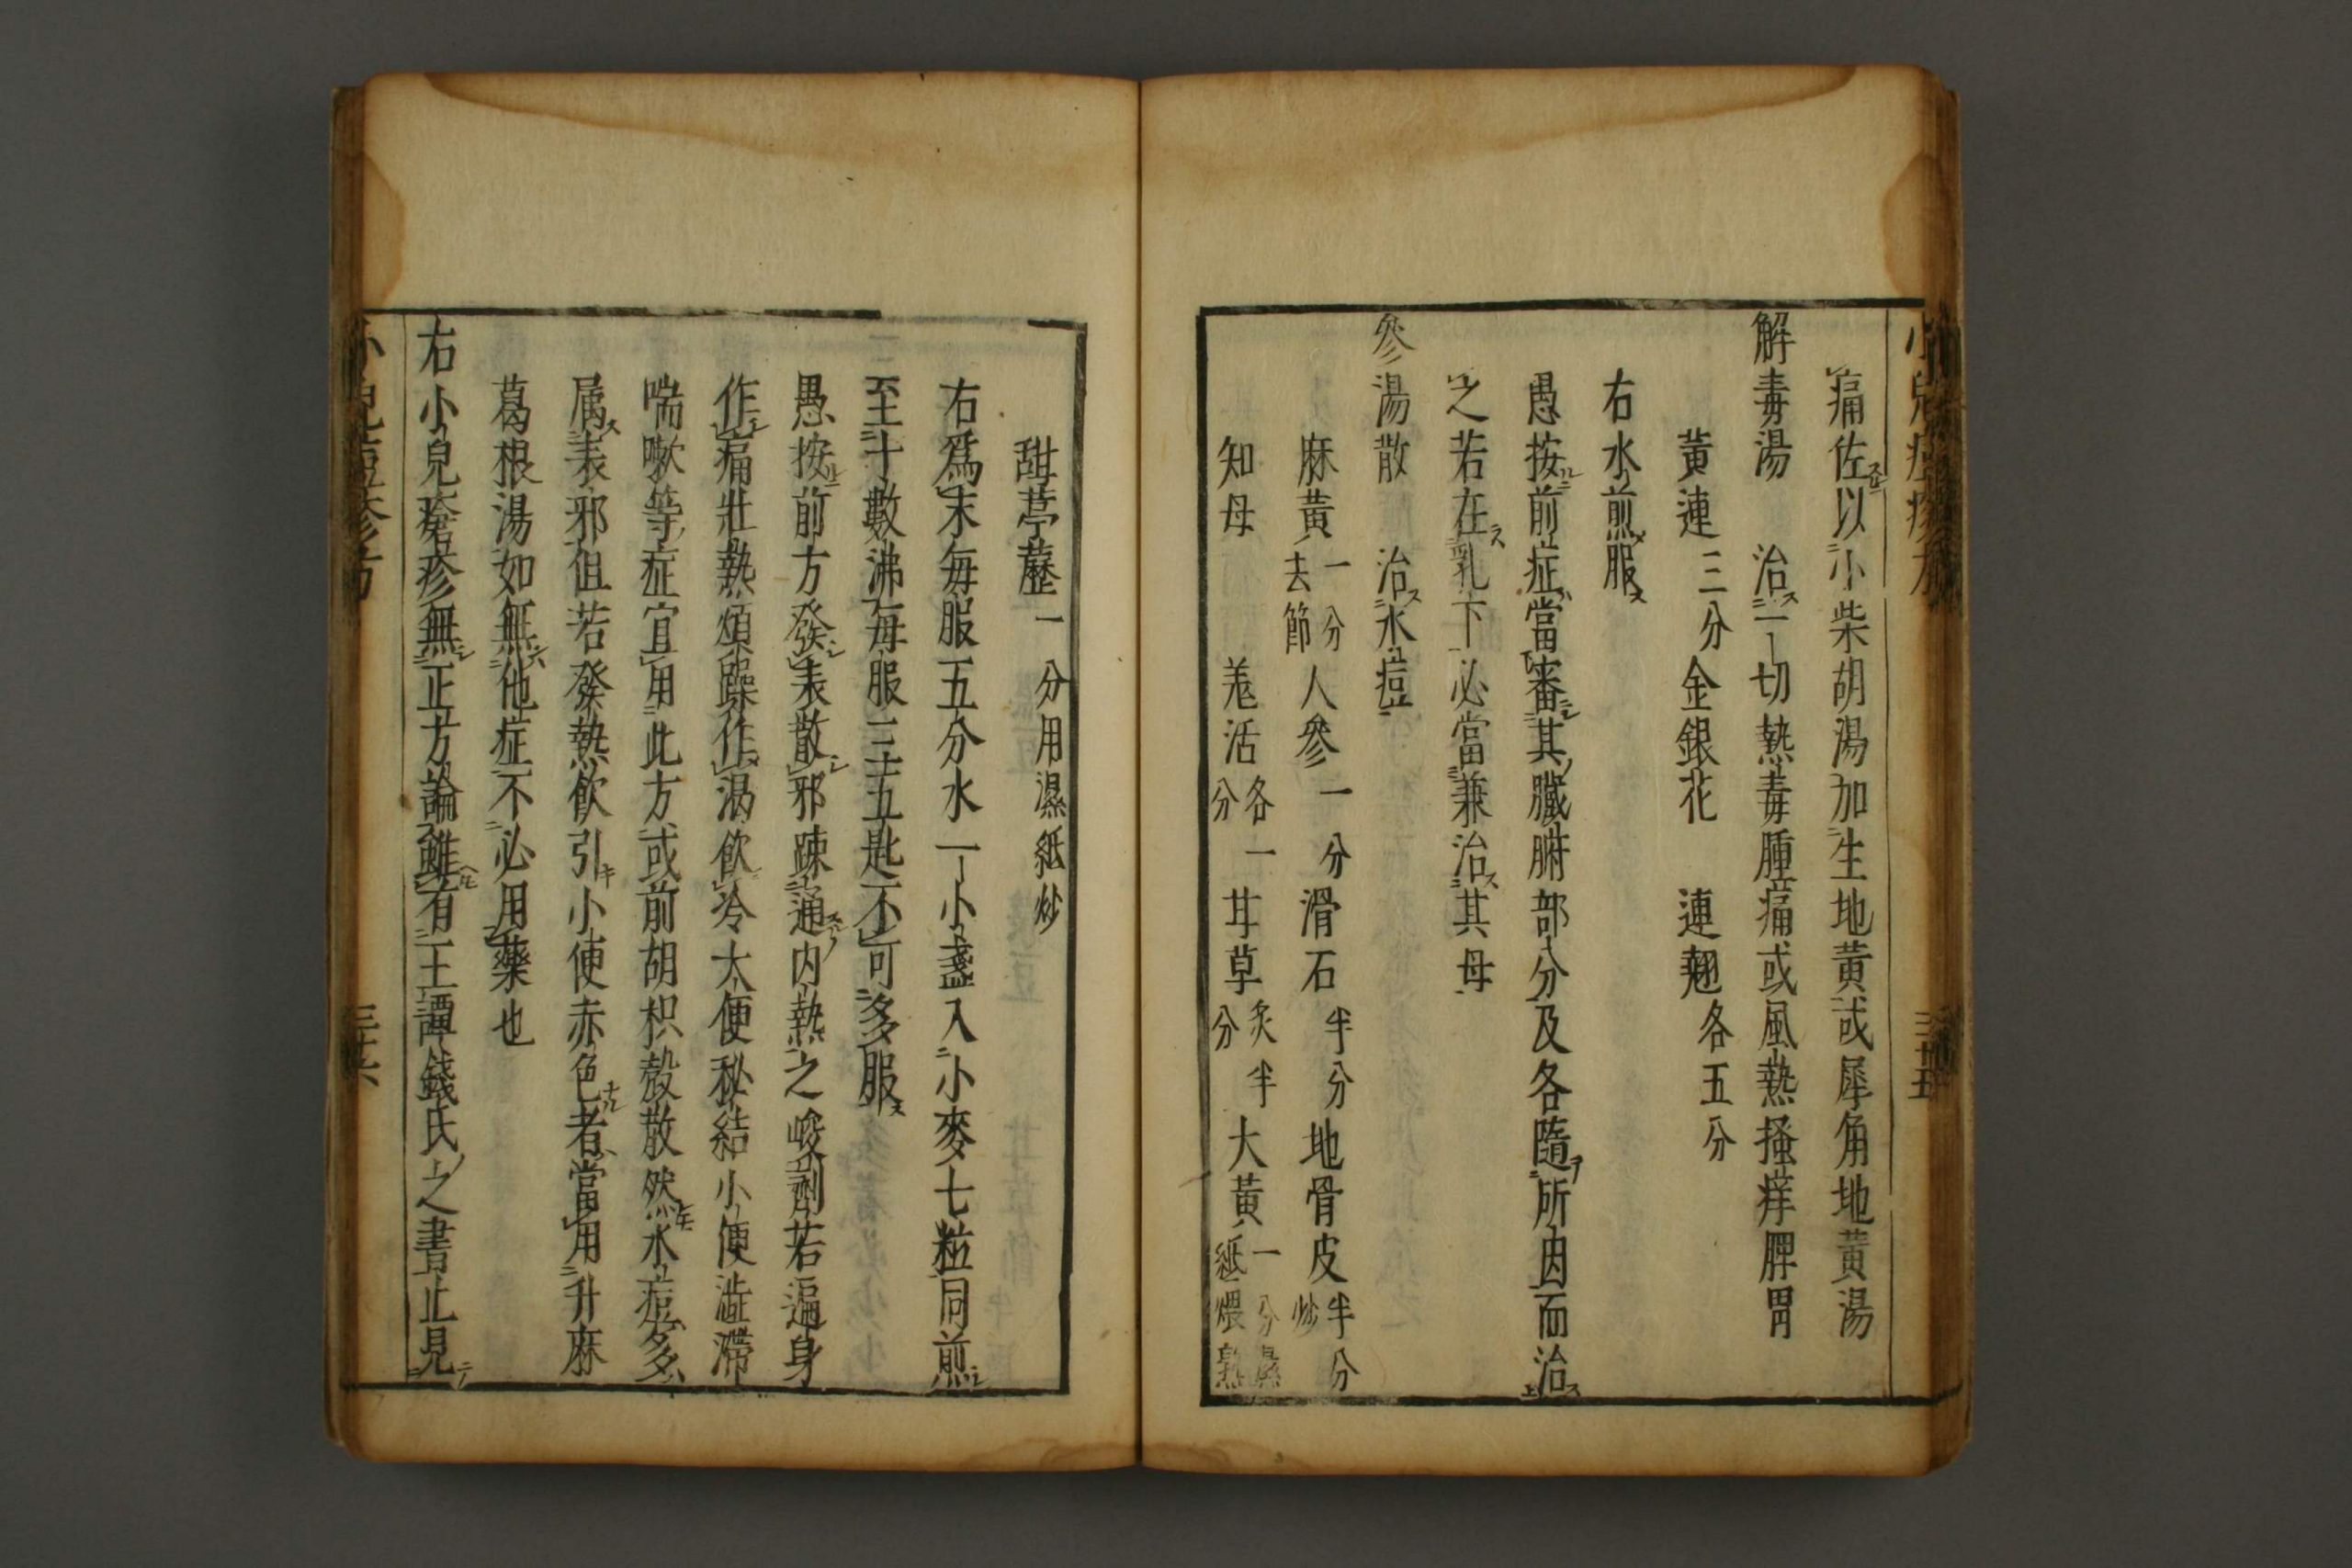 痛佐以小柴胡湯加生地黃或犀角地黃湯
解毒湯 治一切熱毒腫痛或風熱搔痒脾胃
黃連三分 金銀花 連翹各五分
右水煎服
愚按前症當審其臟腑部分及各隨所因而治
之若在乳下必當兼治其母
參湯散 治水痘
麻黃一分去節 人參一分 滑石半分 地骨皮半分炒
知母 羗活各一分 甘草炙半分 大黃一分濕紙煨熟
甜葶藶一分用濕紙炒
右爲末每服五分水一小盞入小麥七粒同煎
至十數沸每服三五匙不可多服
愚按前方發表散邪踈通内熱之峻劑若遍身
作痛壯熱煩躁作渴飲冷大便秘結小便澁滯
喘嗽等症宜用此方或前胡枳殼散然水痘多
属表邪但若發熱飲引小便赤色者當用升麻
葛根湯如無他症不必用藥也
右小兒瘡疹無正方論雖有王譚錢氏之書止見
小兒痘疹方 三十六